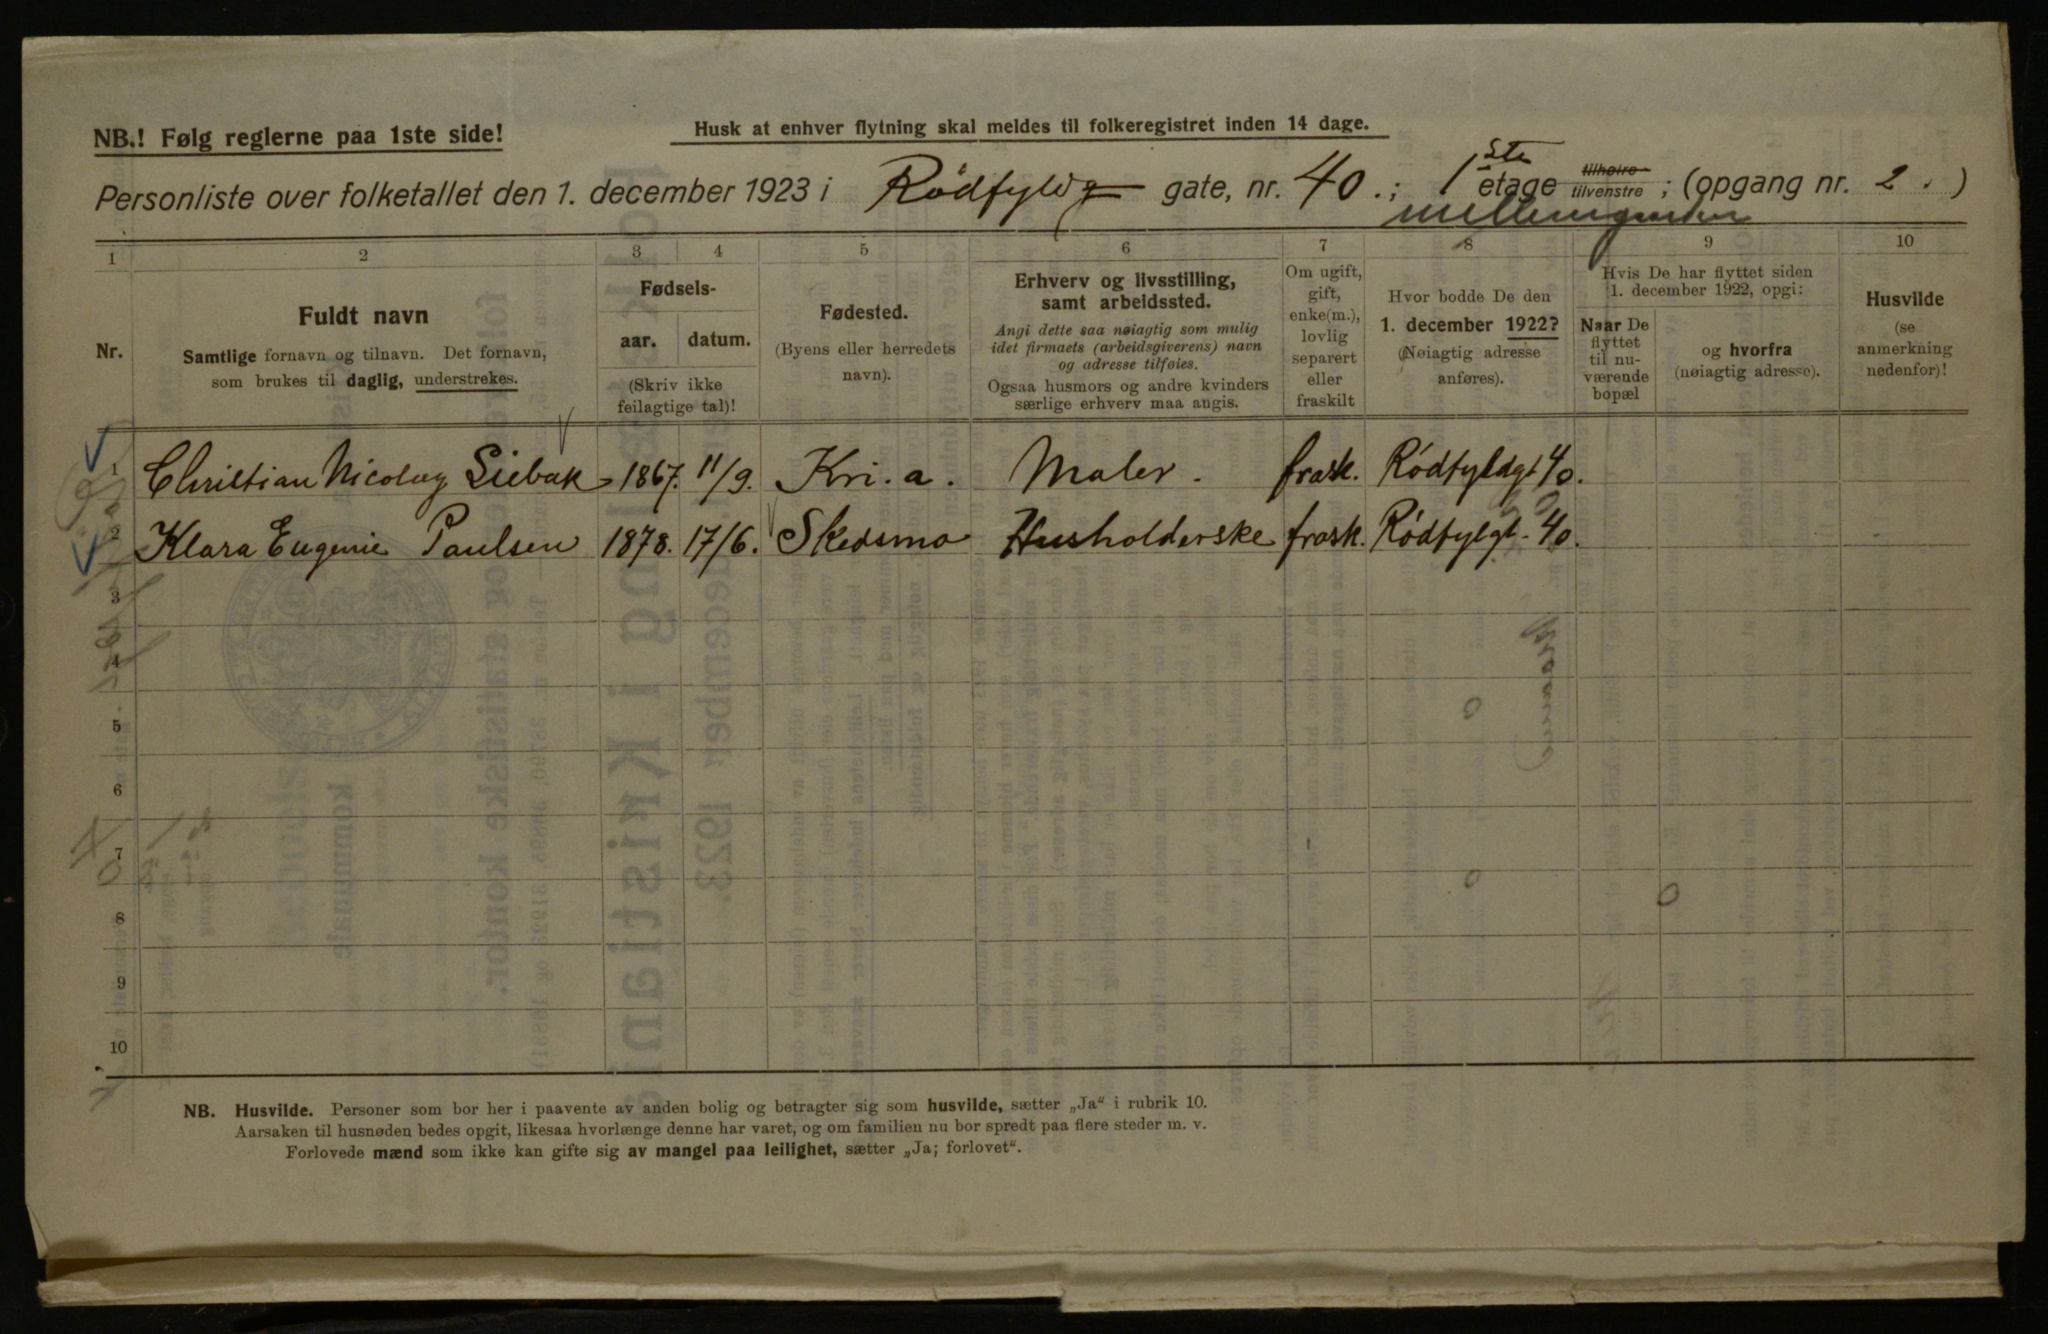 NB.! Følg reglerne paa 1ste side!
Husk at enhver flytning skal meldes til folkeregistret inden 14 dage.
Personliste over folketallet den 1. december 1923 i Rødfyldg gate, nr. 40.; 1ste etage tilhøire tilvenstre; (opgang nr. 2.)
1 2 3 4 5 6 7 8 9 10
Nr.
Fuldt navn
Samtlige fornavn og tilnavn. Det fornavn,
som brukes til daglig, understrekes.
Fødsels-
aar. datum.
(Skriv ikke
feilagtige tal)!
Fødested.
(Byens eller herredets
navn).
Erhverv og livsstilling,
samt arbeidssted.
Angi dette saa nøiagtig som mulig
idet firmaets (arbeidsgiverens) navn
og adresse tilføies.
Ogsaa husmors og andre kvinders
særlige erhverv maa angis.
Om ugift,
gift,
enke(m.),
lovlig
separert
eller
fraskilt
Hvor bodde De den
1. december 1922?
(Nøiagtig adresse
anføres).
Hvis De har flyttet siden
1. december 1922, opgi:
Naar De
flyttet
til nu-
værende
bopæl
og hvorfra
(nøiagtig adresse).
Husvilde
(se
anmerkning
nedenfor)!
1 Christian Nicolay Siebak 1867. 11/9. Kri.a. Maler. frask. Rødfyldgt 40.
2 Klara Eugenie Paulsen 1878. 17/6. Skedsmo Husholderske frask. Rødfylgt. 40.
3
4
5
6
7
8
9
10
NB. Husvilde. Personer som bor her i paavente av anden bolig og betragter sig som husvilde, sætter „Ja" i rubrik 10.
Aarsaken til husnøden bedes opgit, likesaa hvorlænge denne har varet, og om familien nu bor spredt paa flere steder m. v.
Forlovede mænd som ikke kan gifte sig av mangel paa leilighet, sætter „Ja; forlovet".